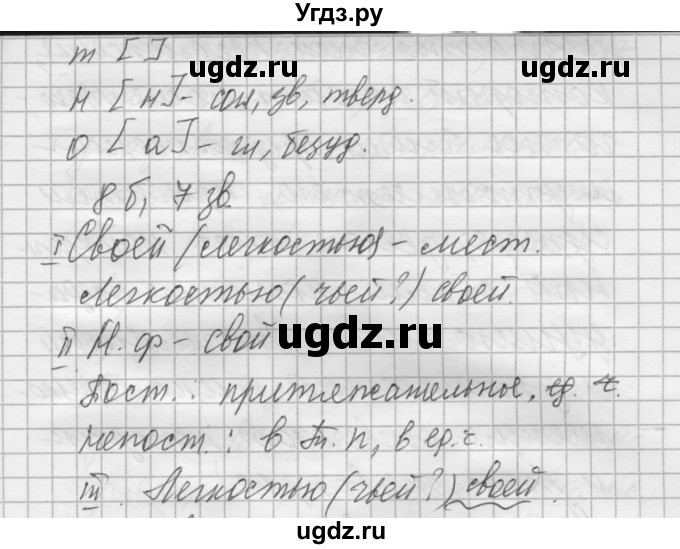 Угдз.ру
т [ ]
н [н] - согл, зв, тверд.
о [а] - гл, безуд.
8 б, 7 зв.
I Своей (легкостью) - мест.
Легкостью (чьей?) своей.
II Н.ф - свой
Пост.: притяжательное, ед. ч.
непост.: в Тв. п, в ед.ч.
III. Легкостью (чьей?) своей.
ugdz.ru ugdz.ru
ugdz.ru
ugdz.ru
ugdz.ru